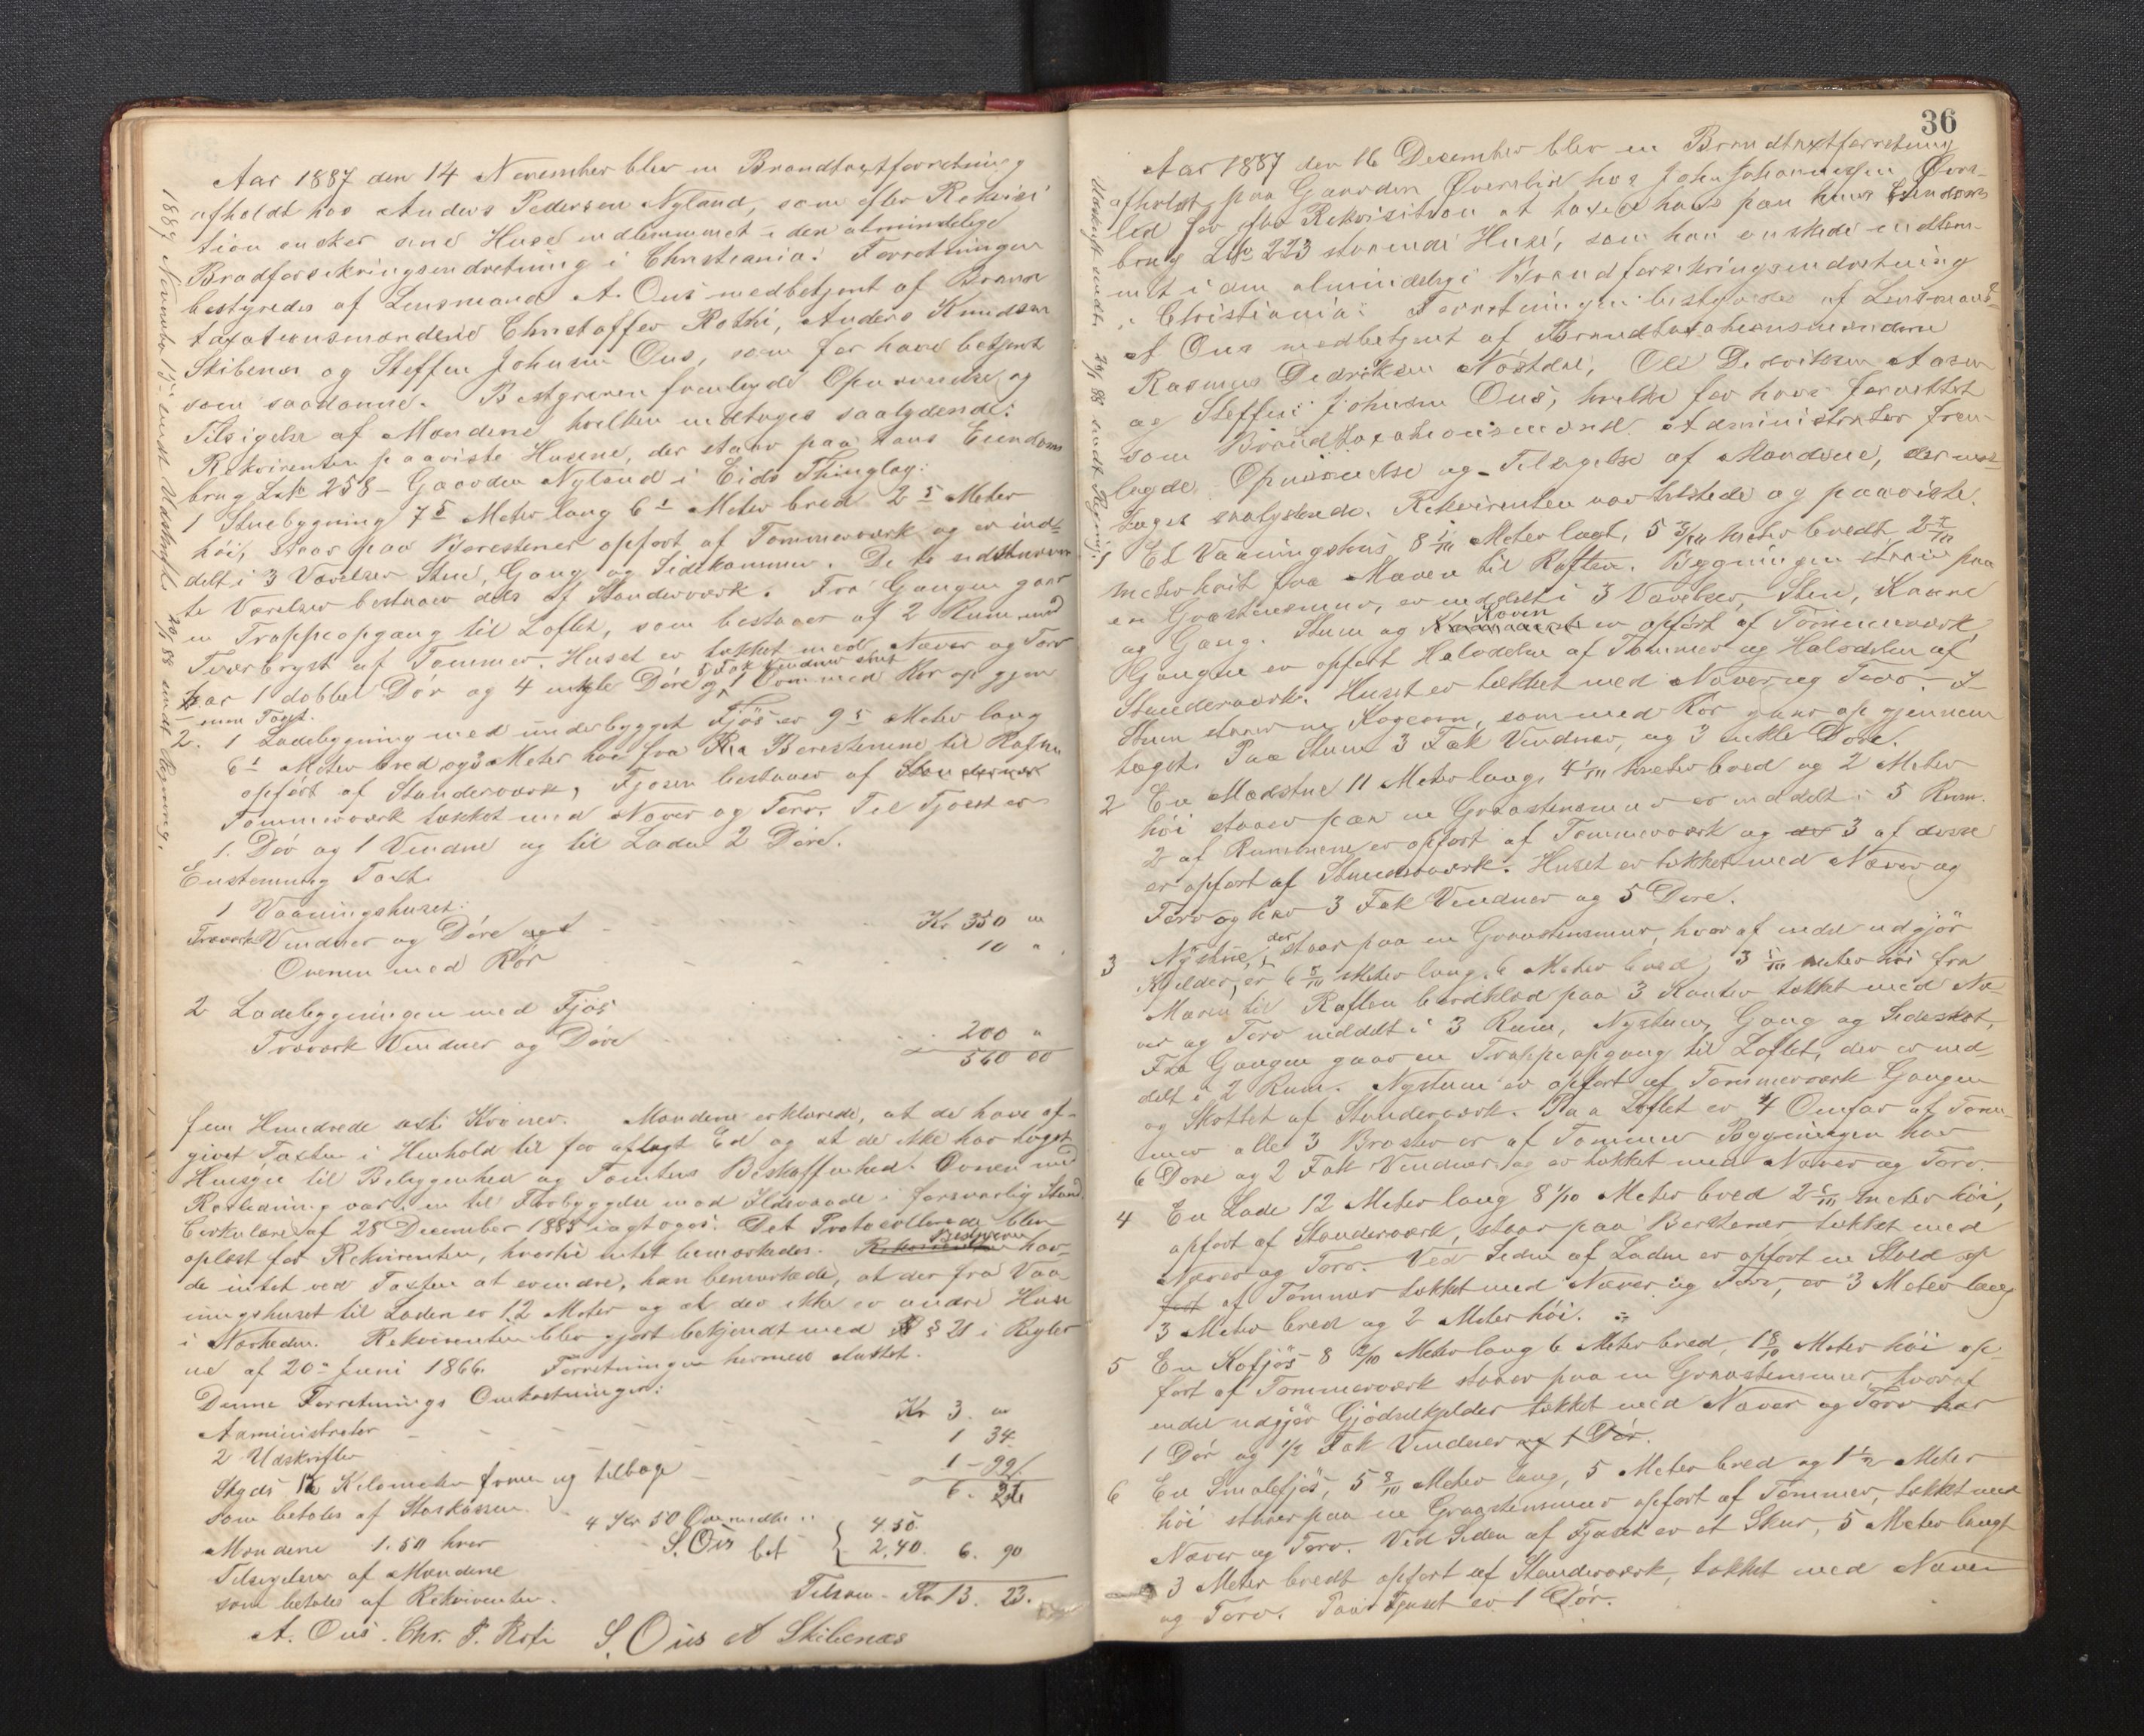 Aar 1887 den 14 November blev en Brandtaxtforretning
afholdt hos Anders Pedersen Nyland, som efter Rekvisi
tion ønsker sine Huse indlemmet i den almindelige
Bradforsikringsindretning i Christiania: Forretningen
bestyredes af Lensmand A. Ous medbetjent af Brand
taxationsmændene Christoffer Rothi, Anders Knudsen
Skibenes og Steffen Johnsen Ous, som før have betjent
som saadanne. Bestyreren fremlagde Opnævnelse og
Tilsigelse af Mændene, hvilken indtages saalydende:
Rekvirenten paaviste Husene, der staar paa hans Eiendoms
brug LNo 258 - Gaarden Nyland i Eids Thinglag:
1 Stuebygning 7 5 Meter lang 6 1 Meter bred 2 5 Meter
høi, staar paa Bærestener opført af Tømmerværk og er ind-
delt i 3 Værelser Stue, Gang og Sidekammer. De to sidstnævn
te Værelser bestaaer dels af Standerværk. Fra Gangen gaar
en Trappeopgang til Loftet, som bestaaer af 2 Rum med
Tværbryst af Tømmer. Huset er tækket med Næver og Torv
har 1 dobbel Dør og 4 enkle Døre og 1 Ovn med Rør op gjen
nem Taget.
2. 1 Ladebygning med underbygget Fjøs er 9 5 Meter lang
6 1 Meter bred og 3 Meter høi fra Bærestenene til Raften
opført af Standerværk, Fjøsen bestaaer af Standerværk
Tømmerværk tækket med Næver og Torv. Til Fjøset er
1. Dør og 1 Vindue og til Laden 2 Døre.
Enstemmig Taxt:
1 Vaaningshuset:
Træværk Vinduer og Døre - - - Kr 350 "
Ovnen med Rør - - - 10 "
2 Ladebygningen med Fjøs
Træværk Vinduer og Døre - - - 200 "
560 00
fem Hundrede seksti Kroner. Mændene erklærede, at de have af-
givet Taxten i Henhold til før aflagt Ed og at de ikke har taget
Hensyn til Beliggenhed og Tomtens Beskaffenhed. Ovnen med
Rørledning var en til Forbyggelse mod Ildsvaade i forsvarlig Stand.
Cirkulære af 28 December 1885 iagtoges. Det Protocollerede blev
oplæst for Rekvirenten, hvortil intet bemærkedes. Rekvirenten Bestyreren hav-
de intet ved Taxten at erindre, han bemærkede, at der fra Vaa
ningshuset til Laden er 12 Meter og at der ikke er andre Huse
i Nærheden. Rekvirenten blev gjort bekjendt med § 21 i Regler
ne af 20de Juni 1866. Forretningen hermed sluttet.
Denne Forretnings Omkostninger:
Administrator - - - Kr 3. "
2 Udskrifter - - - 1 34
Skyds Kilometer frem og tilbage - - - 1 - 99
som betales af Statskassen 6. 33
Mændene 1.50 hver 4 Kr 50 4.50
Tilsigelser af Mændene S. Ous bet 2,40. 6. 90
som betales af Rekvirenten. Tilsam - Kr 13. 23.
A. Ous. Chr. P. Roti S. Ous A Skibenæs
1887 November 15de Udskrift 20/1 88 sendt Regning.
36
Aar 1887 den 16 December blev en Brandtaxtforretning
afholdt paa Gaarden Øverelid hos John Johannessen Øvre-
lid for efter Rekvisition at taxere hans paa hans Eiendoms
brug LNo 223 staaende Huse, som han ønskede indlem-
met i den almindelige Brandforsikringsindretning
i Christiania: Forretningen bestyredes af Lensmand
A Ous medbetjent af Brandtaxationsmændene
Rasmus Dedriksen Nøstdal, Ole Aasen
og Steffen Johnsen Ous, hvilke før have forrettet
som Brandtaxationsmænd. Administrator frem-
lagde Opnævnelse og Tilsigelse af Mændene, der ind-
tages saalydende. Rekvirenten var tilstede og paaviste.
1 Et Vaaningshus 8 1/10 Meter langt, 5 3/10 Meter bredt, 2
Meter høit fra Muren til Raften. Bygningen staar paa
en Graastensmur, er inddelt i 3 Værelser, Stue, Kaave
og Gang. Stuen og Kaaven er opført af Tømmerværk,
Gangen er opført Halvdelen af Tømmer og Halvdelen af
Standerværk. Huset er tækket med Næver og Torv. I
Stuen staar en Kogeovn, som med Rør gaar op gjennem
taget. Paa Stuen 3 Fak Vinduer, og 3 enkle Døre.
2 En Mastue 11 Meter lang, 4 1/10 Meter bred og 2 Meter
høi staaer paa en Graastensmur er inddelt i 5 Rum.
2 af Rummene er opført af Tømmerværk og 3 af disse
er opført af Standerværk. Huset er tækket med Næver og
Torv og har 3 Fak Vinduer og 5 Døre.
3 Nystue, der staar paa en Graastensmur, hvoraf endel udgjør
Kjelder, er 6 5/10 Meter lang, 6 Meter bred, 3 1/10 Meter høi fra
Muren til Raften bordklæd paa 3 Kanter tækket med Næ-
ver og Torv inddelt i 3 Rum, Nystuen, Gang og Sideskot,
Fra Gangen gaar en Trappeopgang til Loftet, der er ind
delt i 2 Rum. Nystuen er opført af Tømmerværk Gangen
og Skottet af Standerværk. Paa Loftet er 4 Omfar af Tøm-
mer alle 3 Brøster er af Tømmer Bygningen har
6 Døre og 2 Fak Vinduer og er tækket med Næver og Torv.
4 En Lade 12 Meter lang 8 1/10 Meter bred 2 Meter høi,
opført af Standerværk, staar paa Berstener tækket med
Næver og Torv. Ved Siden af Laden er opført en Stald op
ført af Tømmer tækket med Næver og Torv, er 3 Meter lang
3 Meter bred og 2 Meter høi.
5 En Kofjøs 8 Meter lang 6 Meter bred, 1 8/10 Meter høi op-
ført af Tømmerværk staaer paa en Graastensmur, hvoraf
endel udgjør Gjødselkjelder tækket med Næver og Torv har
1 Dør og 1/2 Fak Vinduer og 1 Dør.
6 En Smalefjøs, 5 8/10 Meter lang, 5 Meter bred og 1 1/2 Meter
høi staaer paa en Graastensmur opført af Tømmer, tækket med
Næver og Torv. Ved Siden af Fjøset er et Skur, 5 Meter langt
3 Meter bredt opført af Standerværk, tækket med Næver
og Torv. Paa Fjøset er 1 Dør.
Udskrift sendt 20/1 88 sendt Regning.